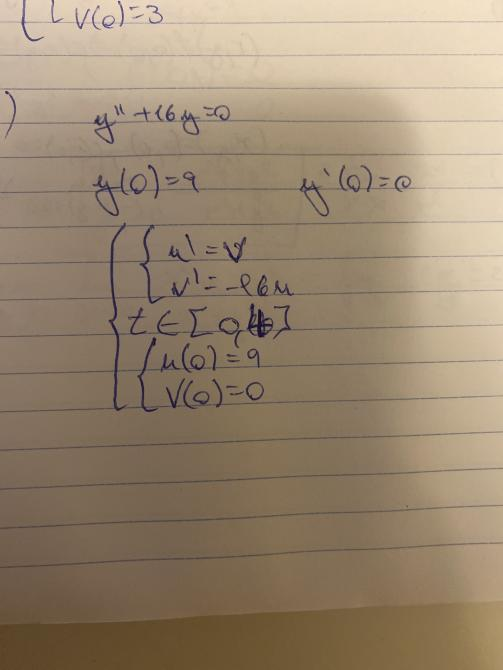 V(0)=3
)
y"+16y=0
y(0)=9 y'(0)=0
u'=V
v'=-16u
t∈[0,
u(0)=9
V(0)=0